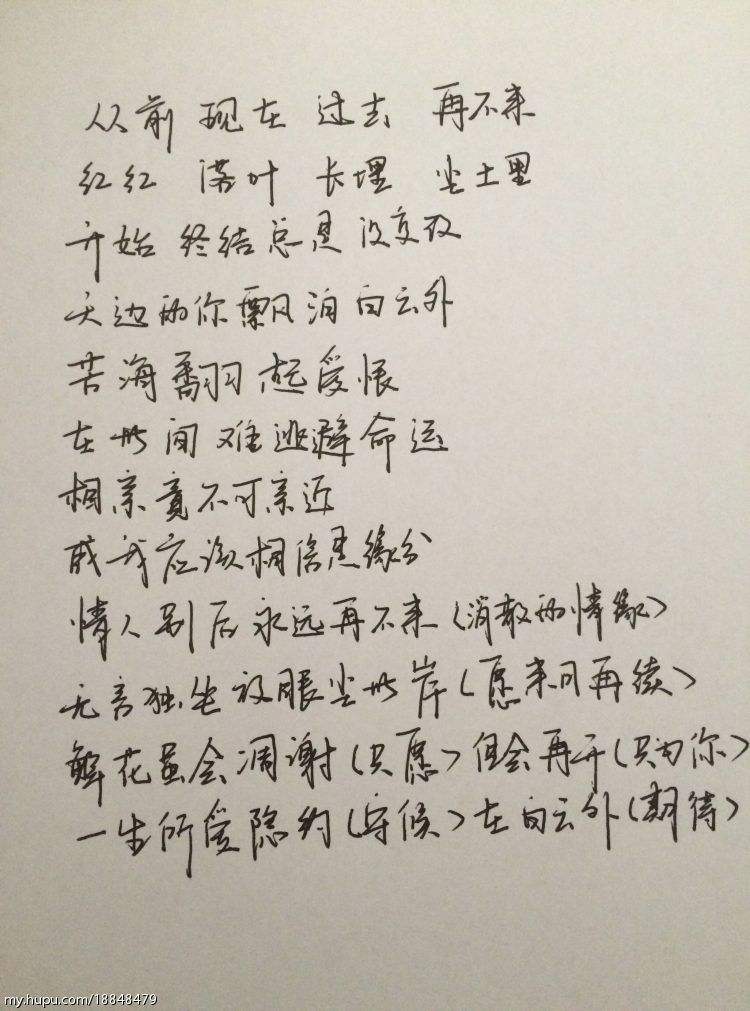 从前 现在 过去 再不来
红红 落叶 长埋 尘土里
开始 终结 总是 没变改
天边的你飘泊白云外
苦海翻起爱恨
在世间难逃避命运
相亲竟不可亲近
或我应该相信是缘分
情人别后永远再不来(消散的情缘)
无言独坐放眼尘世岸(愿来日再续)
鲜花虽会凋谢(只愿)但会再开(只为你)
一生所爱隐约(守候)在白云外(期待)
my.hupu.com/18848479